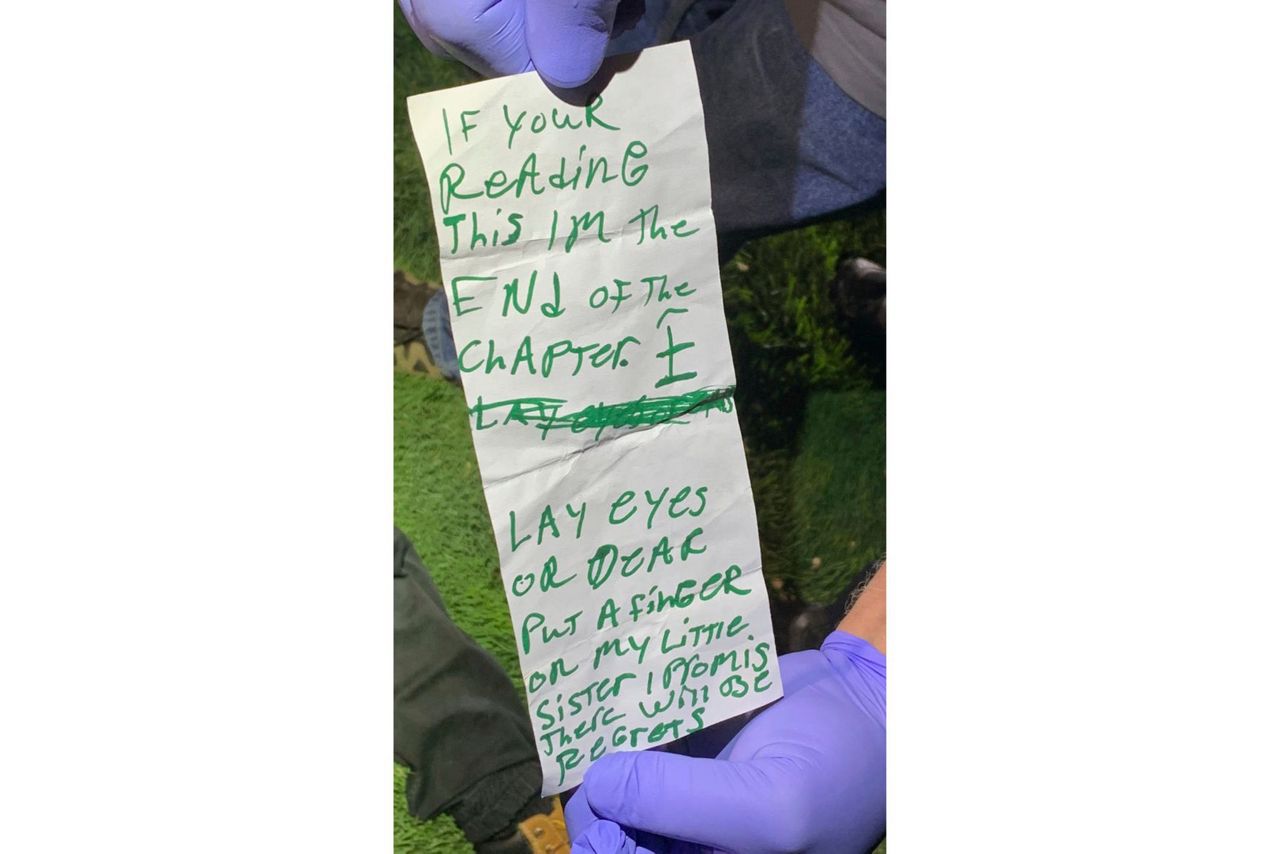 IF YOUR
REAdinG
This I'm The
ENd OF The
ChAPTER. I
LAY eyes
OR DEAR
PuT A finGER
on MY LiTTle
SisTer I Promis
There will BE
REGreTS